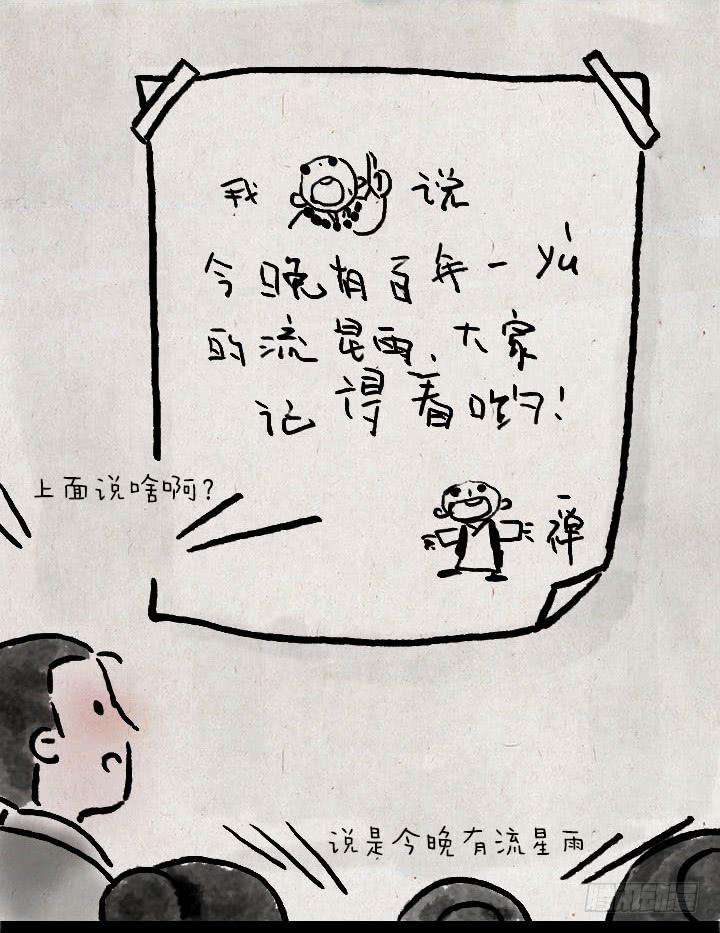 我 说
今晚有百年一yù
的流星雨、大家
记得看哟！
一禅
上面说啥啊?
说是今晚有流星雨